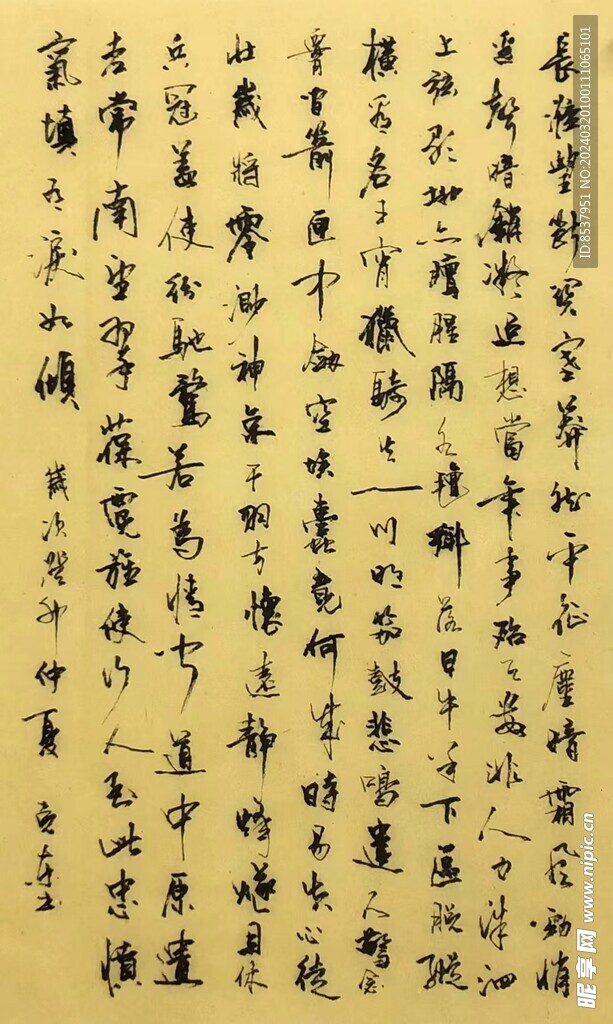 長淮望斷関塞莽然平征塵暗霜風勁悄
邊聲暗銷凝追想當年事殆天數非人力洙泗
上弦歌地亦膻腥隔水氈鄉落日牛羊下區脫縱
橫看名王宵獵騎火一川明笳鼓悲鳴遣人驚念
腰間箭匣中劍空埃蠹竟何成時易失心徒
壯歲將零渺神京干羽方懷遠靜烽燧且休
兵冠蓋使紛馳騖若為情聞道中原遺
老常南望翠葆霓旌使行人至此忠憤
氣填有淚如傾
歲次癸卯仲夏
ID:8537951 NO:20240320100111065101
昵享网 www.nipic.cn